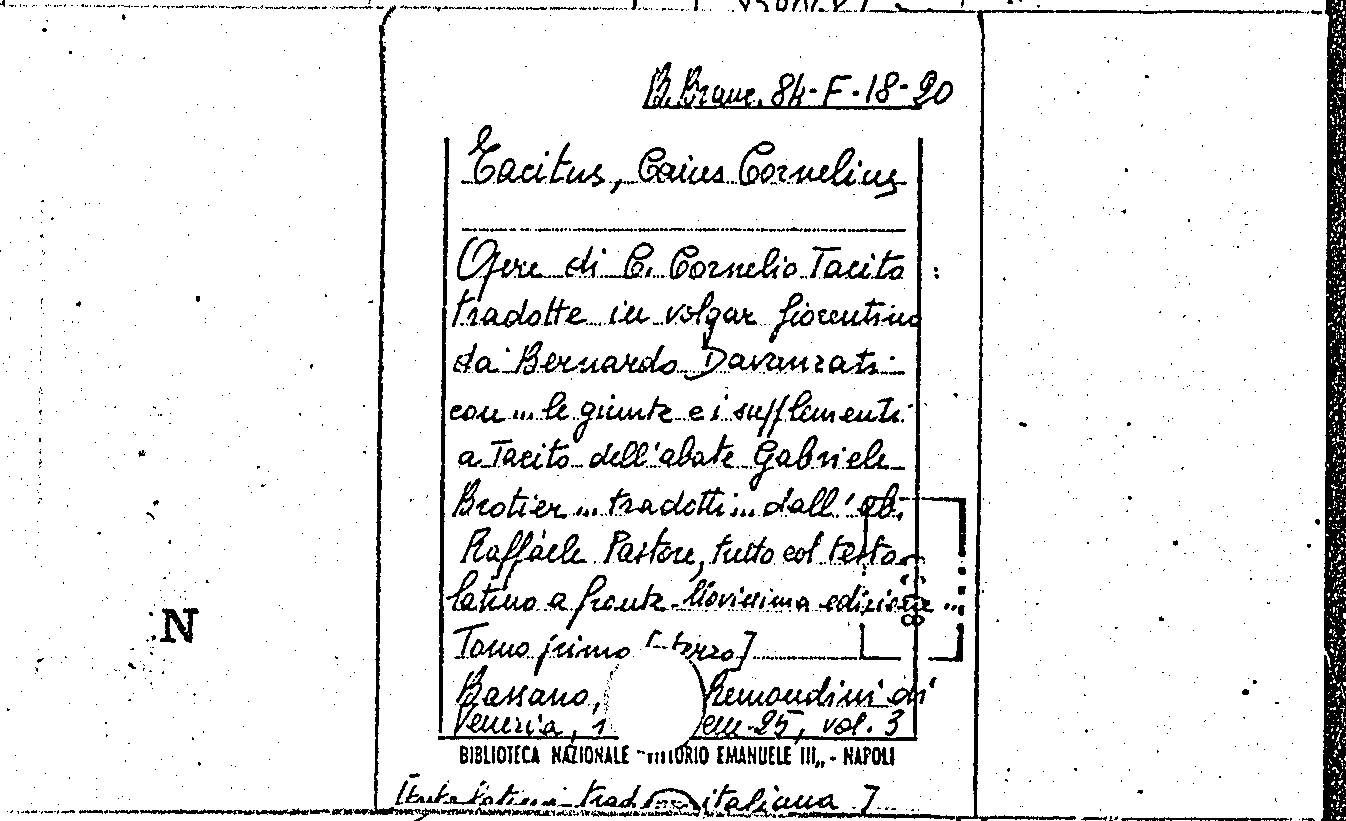 B. Branc. 84-F-18-20
Tacitus, Caius Cornelius
Opere di C. Cornelio Tacito :
tradotte in volgar fiorentino
da Bernardo Davanzati
con ... le giunte e i supplementi
a Tacito dell'abate Gabriele
Brotier ... tradotti ... dall'ab.
Raffaele Pastore, tutto col testo
latino a fronte. Novissima edizione ...
Tomo primo [- terzo]
Bassano, Remondini di
Venezia, 1 cm. 25, vol. 3
BIBLIOTECA NAZIONALE "VITTORIO EMANUELE III,, - NAPOLI
italiana ]
N